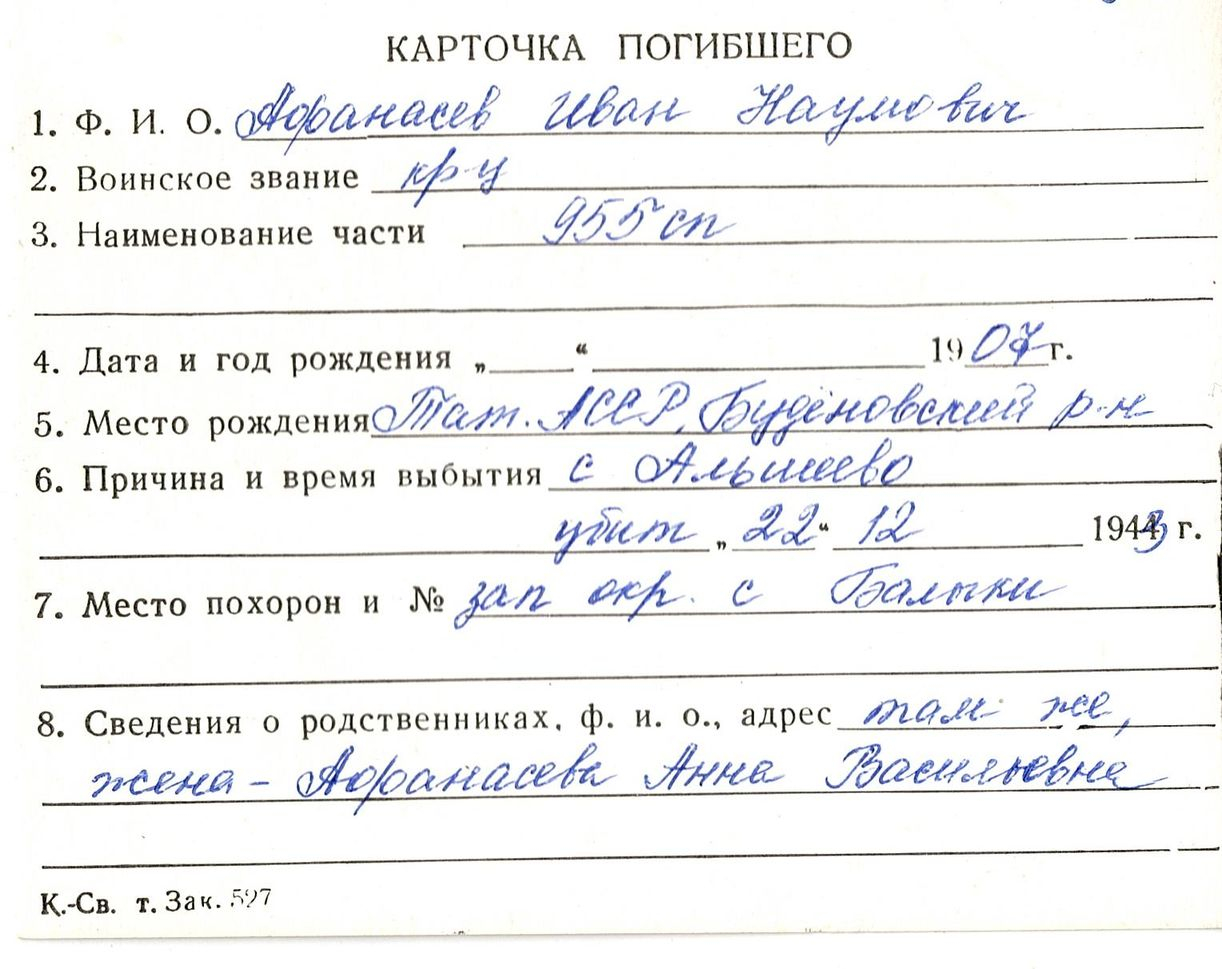 КАРТОЧКА ПОГИБШЕГО
1. Ф. И. О. Афанасев Иван Наумович
2. Воинское звание кр-ц
3. Наименование части 955 сп
4. Дата и год рождения „ “ 1907 г.
5. Место рождения Тат. АССР, Будёновский р-н
6. Причина и время выбытия с Альшеево
убит „ 22 “ 12 1943 г.
7. Место похорон и № зап окр. с Балыки
8. Сведения о родственниках, ф. и. о., адрес там же,
жена - Афанасева Анна Васильевна
К.-Св. т. Зак. 597